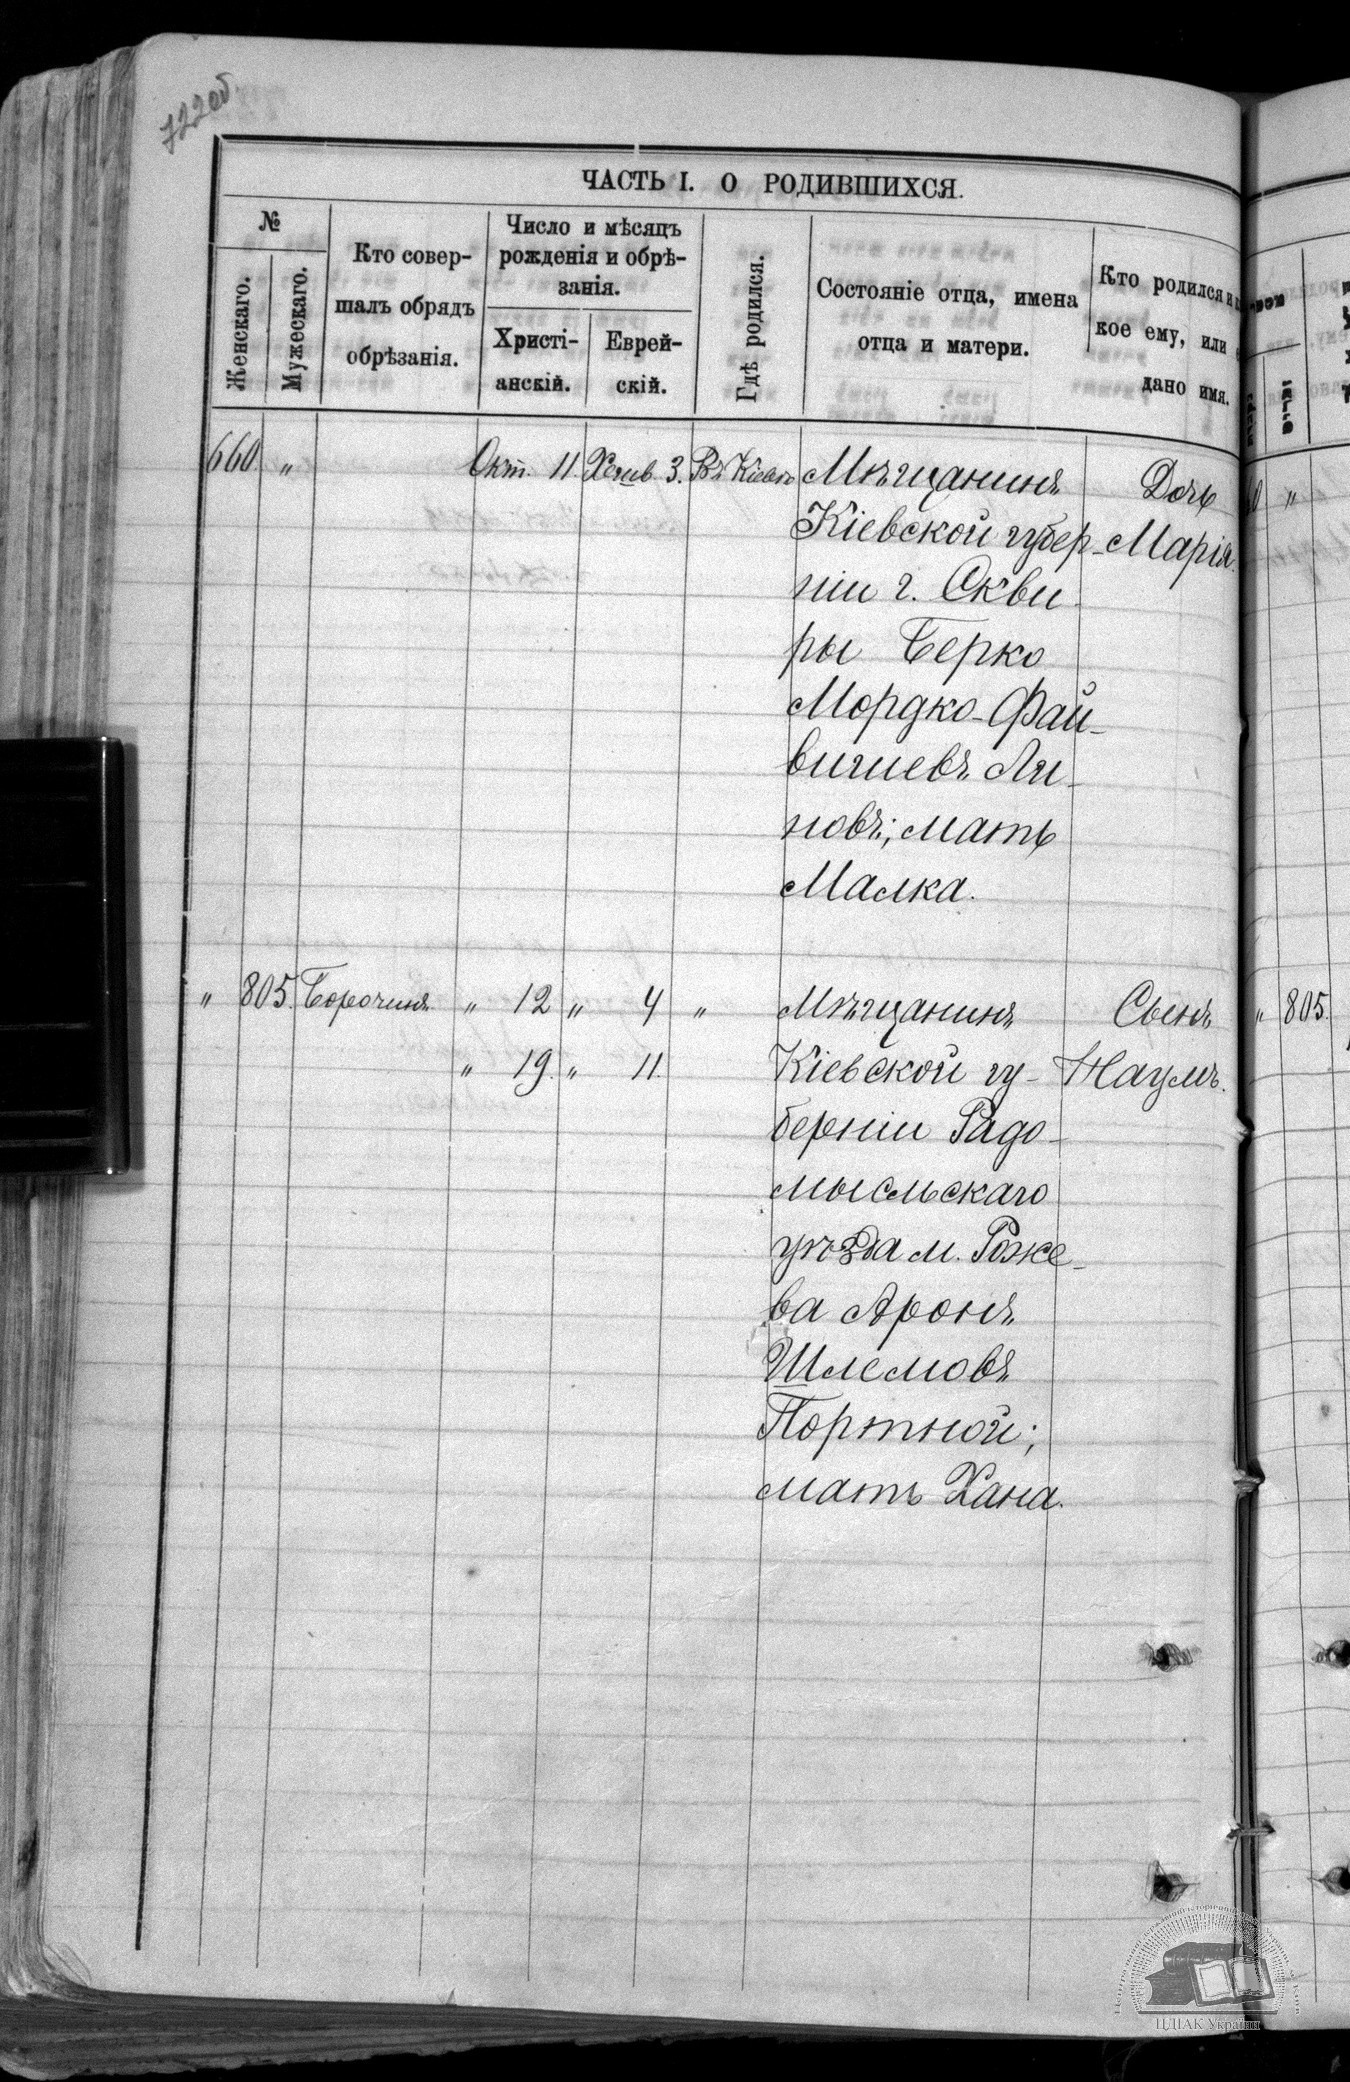 722 об
ЧАСТЬ I. О РОДИВШИХСЯ.
№
Женскаго.
Мужескаго.
Кто совер-
шалъ обрядъ
обрѣзанія.
Число и мѣсяцъ
рожденія и обрѣ-
занія.
Христі-
анскій.
Еврей-
скій.
Гдѣ родился.
Состояніе отца, имена
отца и матери.
Кто родился и
кое ему, или
дано имя.
660 " Окт. 11. Хешв. 3. Въ Кіевѣ Мѣщанинъ Дочь
Кіевской губер- Марія.
ніи г. Скви-
ры Берко
Мордко-Фай-
вишевъ Ли-
новъ; мать
Малка.
" 805. Борочинъ " 12 " 4 " Мѣщанинъ Сынъ
" 19. " 11. Кіевской гу- Наумъ.
берніи Радо-
мысльскаго
уѣзда м. Роже-
ва Аронъ
Шлемовъ
Портной;
мать Хана.
" 805.
ЦДІАК України